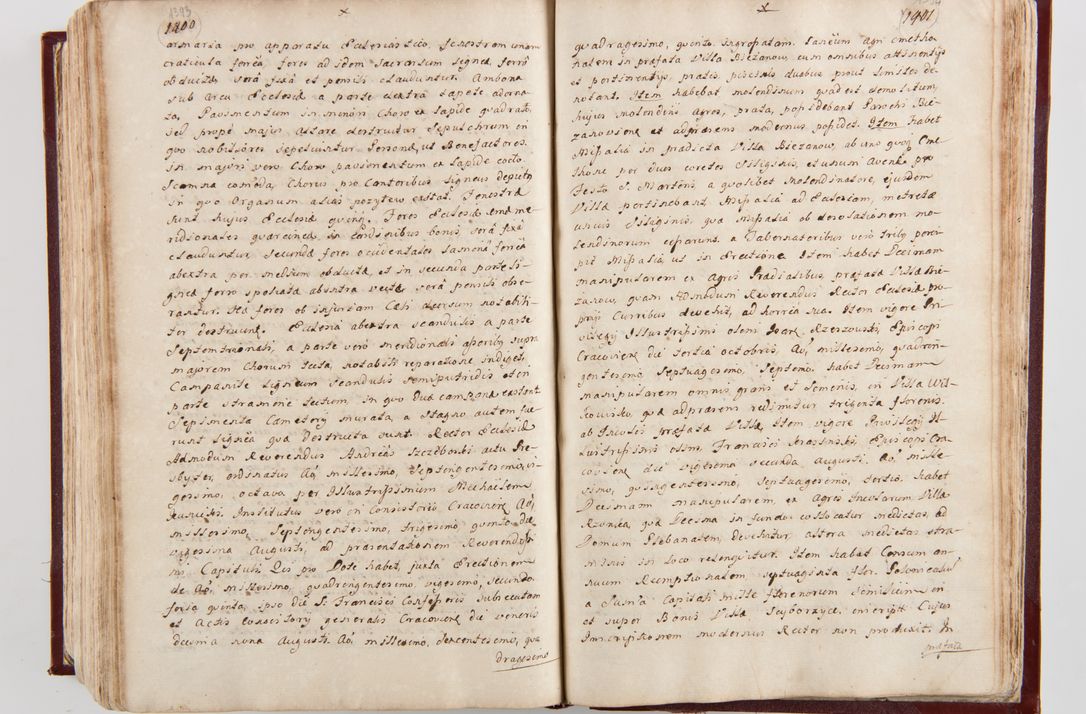 1393
1400
armaria pro apparatu Ecclesiastico, fenestram unam
craticula ferrea, fores ad idem Sacrarium lignea ferro
obducta, sera fixa et pensili clauduntur. Ambona
sub arcu Ecclesiæ a parte dextra tapete adorna-
ta, Pavimentum in minori Choro ex lapide quadrato,
sed prope majus Altare destruitur Sepulchrum in
quo nobiliores sepeliuntur Personæ, ut Benefactores.
in majori vero Choro pavimentum ex lapide cocto.
Scamna comoda, Chorus pro Cantoribus ligneus depictus
in quo Organum alias pozytew extat. Fenestræ
sunt hujus Ecclesiæ Fores Ecclesiæ una me-
ridionales in bonis, sera fixa
clauduntur, secunda fores occidentales lamina ferrea
abextra per medium obducta, et in secunda parte li-
gnea ferro spoliata abintra vecte, sera pensili obse-
rantur. Hæ fores ob injuriam Cæli aeream notabili-
ter destructæ. Ecclesia abextra scandulis a parte
Septemtrionali, a parte vero meridionali asseribus supra
majorem Chorum tecta, notabili reparatione indiget.
Campanile ligneum scandulis semiputridis et in
parte stramine tectum, in quo duæ campanæ existunt.
Sepimenta Cæmeterii murata, a stagno autem fue-
runt lignea quæ destructa sunt. Rector Ecclesiæ
Admodum Reverendus Andreas Szczerbański actu Pre-
sbyter, ordinatus Aõ. millesimo, septengentesimo, vi-
gesimo, octavo per Illustrissimum Michaelem
Kunicki. Institutus vero in Consistorio Cracoviensi Aõ.
millesimo, Septengentesimo, trigesimo quinto die
vigesima Augusti, ad præsentationem Reverendissi
mi Capituli Qui pro Dote habet, juxta Erectionem
de Aõ. millesimo, quadrengentesimo, vigesimo, secundo.
feria quinta, ipso die S. Francisci Confessoris subsecutam
ex Actis Consistorij generalis Cracoviensis die veneris
decima nona Augusti. Aõ. millesimo, quæ
dragesimo
1394
1401
quadragesimo, quinto. ingrossatam. Laneum Agri cmetho
nalem in præfata Villa Biezanow, cum omnibus attinentijs
et pertinentijs, pratis, piscinis duabus prout limites de-
notant. Item habebat molendinum quod est demolitum,
hujus molendini agros, prata, possidebant Parochi Bie-
zanoviensis et adpræsens modernus possidet. Item habet
Missalia in prædicta Villa Biezanow, ab uno quoq̃ Cme
thone per duos coretos siliginis, et unum Avenæ pro
Festo S. Martini, a quolibet molendinatore, ejusdem
Villæ pertinebant Missalia ad Ecclesiam, metretæ
unius siliginis, quæ missalia ob desolationem mo-
lendinorum cessarunt. a Tabernatoribus vero tribus perci-
pit Missalia ut in Erectione Item habet Decimam
manipularem ex Agris Prædialibus præfatæ Villæ Bie-
zanow, quam Admodum Reverendus Rector Ecclesiæ pro-
prijs Curribus devehit, ad horrea sua. Item vigore Pri-
vilegij Illustrissimi olim Joanis Rzeszowski Episcopi
Cracoviensis die tertia octobris, Aõ, millesimo, quadrin-
gentesimo, Septuagesimo, Septimo, habet Decimam
manipularem omnis grani et seminis, in Villa Wil-
kowisko, quæ adpræsens redimitur triginta florenis.
ab Incolis præfatæ Villæ, Item vigore Privilegij Il-
lustrissimi olim, Francisci Krasinski Episcopi Cra-
coviensis die vigesima secunda Augusti, Aõ, mille-
simo, quingentesimo, Septuagesimo, tertio. habet
Decimam manipularem, ex Agris Incolarum Villæ
Rzonka, quæ Decima in fundo collocatur medietas ad
Domum Plebanalem, devehitur, altera medietas stra-
minis in loco relinquitur. Item habet Censum an-
nuum Reemptionalem, septuaginta flor. Polonicales
a Summa Capitali mille florenorum similium in
et super Bonis Villæ Scyborzyce, inscripti Cujus
Inscriptionem modernus Rector non produxit. In
præfata